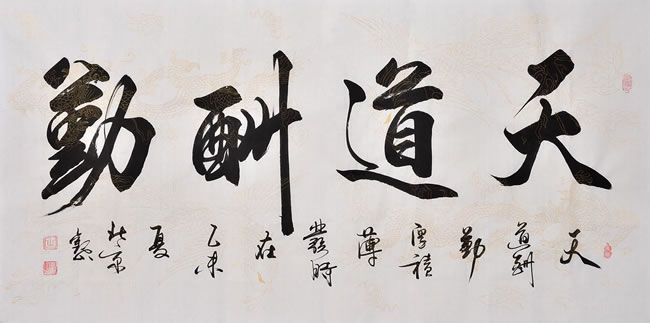 天道酬勤
天道酬勤厚積薄發時在乙未夏北京